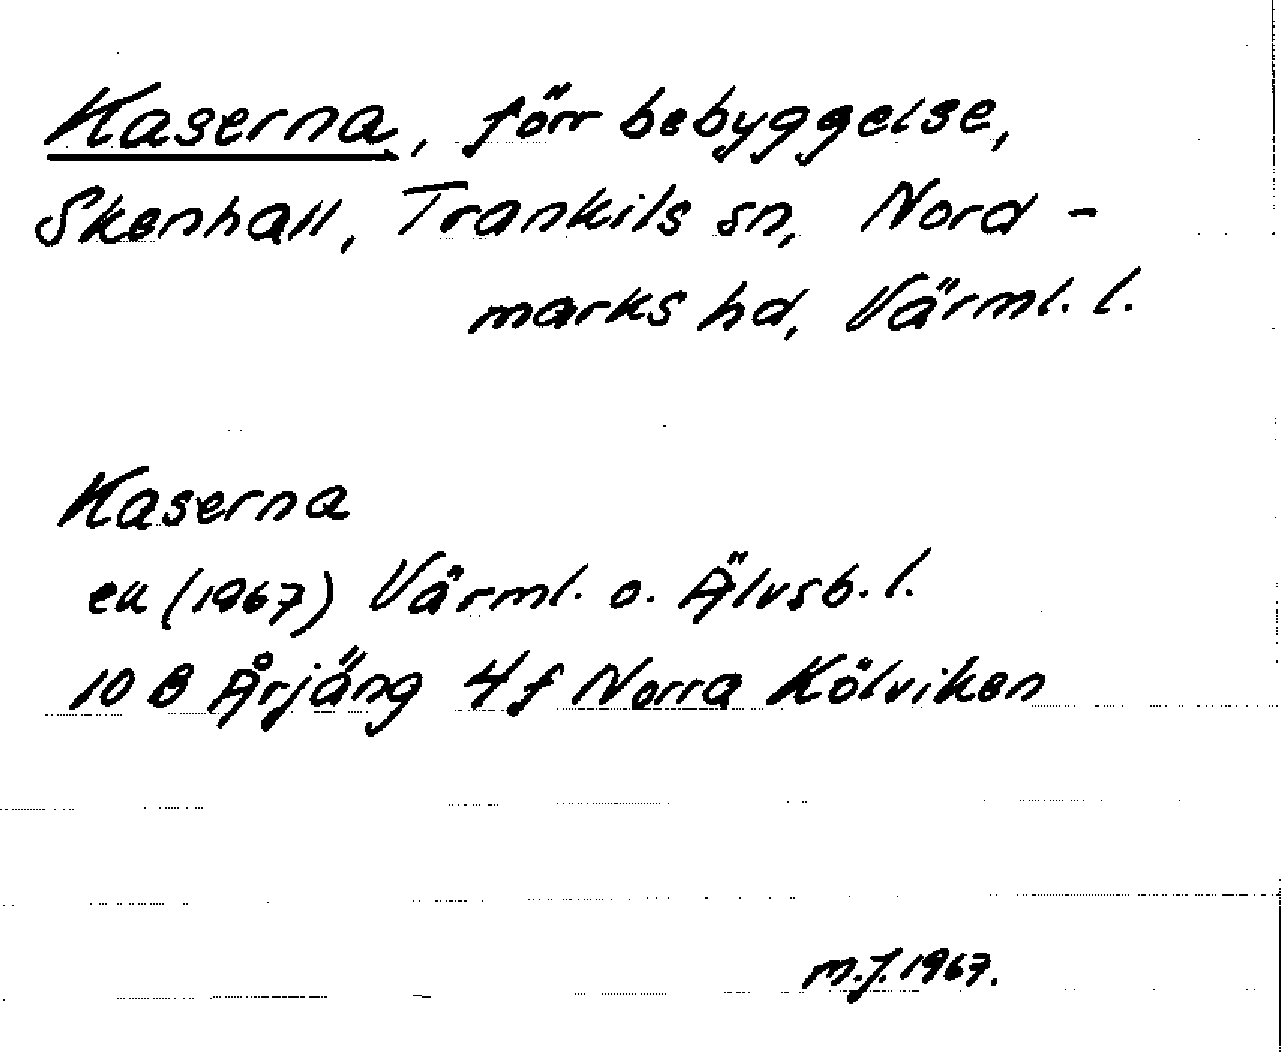 Kaserna, förr bebyggelse,
Skenhall, Trankils sn, Nord-
marks hd, Värml. l.
Kaserna
ek (1967) Värml. o. Älvsb. l.
10 B Årjäng 4 f Norra Kölviken
M.J. 1967.